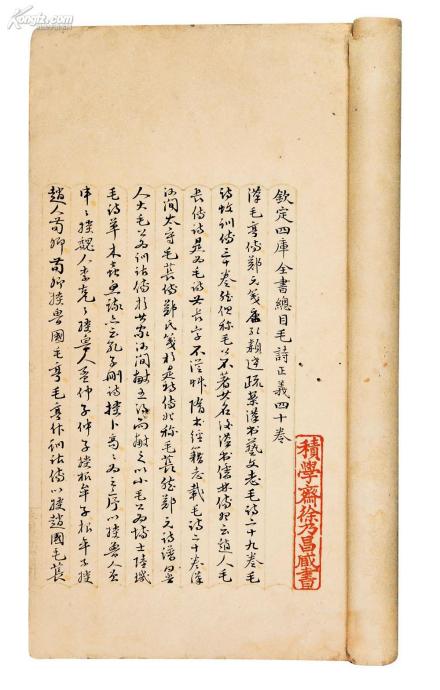 欽定四庫全書總目毛詩正義四十卷
漢毛亨傳鄭元箋唐孔穎達疏案漢書藝文志毛詩二十九卷毛
詩故訓傳三十卷然但稱毛公不著其名後漢書儒林傳始云趙人毛
長傳詩是為毛詩其長字不從艸隋書經籍志載毛詩二十卷漢
河間太守毛萇傳鄭氏箋於是詩傳始稱毛萇然鄭元詩譜曰魯
人大毛公為訓詁傳於其家河間獻王得而獻之以小毛公為博士陸璣
毛詩草木蟲魚疏亦云孔子刪詩授卜商商為之序以授魯人曾
申申授魏人李克克授魯人孟仲子仲子授根牟子根牟子授
趙人荀卿荀卿授魯國毛亨毛亨作訓詁傳以授趙國毛萇
積學齋徐乃昌藏書
Kongfz.com